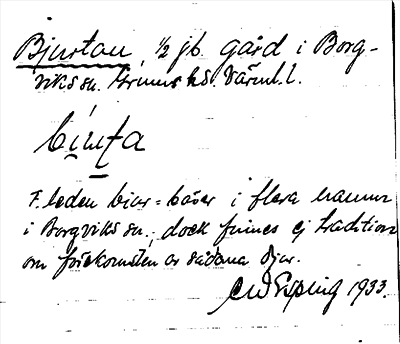 Bjurtan, 1/2 jb. gård i Borg-
viks sn. Grums hd. Värml. l.
F. leden bjur = bäver i flera namn
i Borgviks sn., dock finnes ej tradition
om förekomsten av sådana djur.
CW Esping 1933.